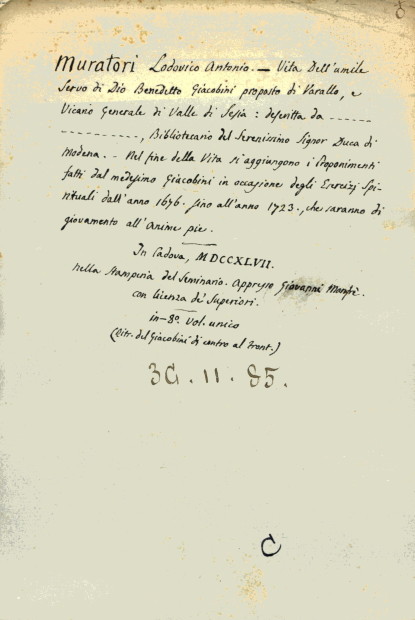 Muratori Lodovico Antonio. — Vita Dell'umile
Servo di Dio Benedetto Giacobini proposto di Varallo, e
Vicario Generale di Valle di Sesia : descritta da --------
-----------, Bibliotecario del Serenissimo Signor Duca di
Modena. — Nel fine della Vita si aggiungono i Proponimenti
fatti dal medesimo Giacobini in occasione degli Esercizj Spi-
rituali dall'anno 1676. fino all'anno 1723., che saranno di
giovamento all'Anime pie.
In Padova, MDCCXLVII.
nella Stamperia del Seminario. Appresso Giovanni Manfrè.
con licenza de' Superiori.
in-8º. vol. unico
(Ritr. del Giacobini di contro al Front.)
3G.11.85.
C